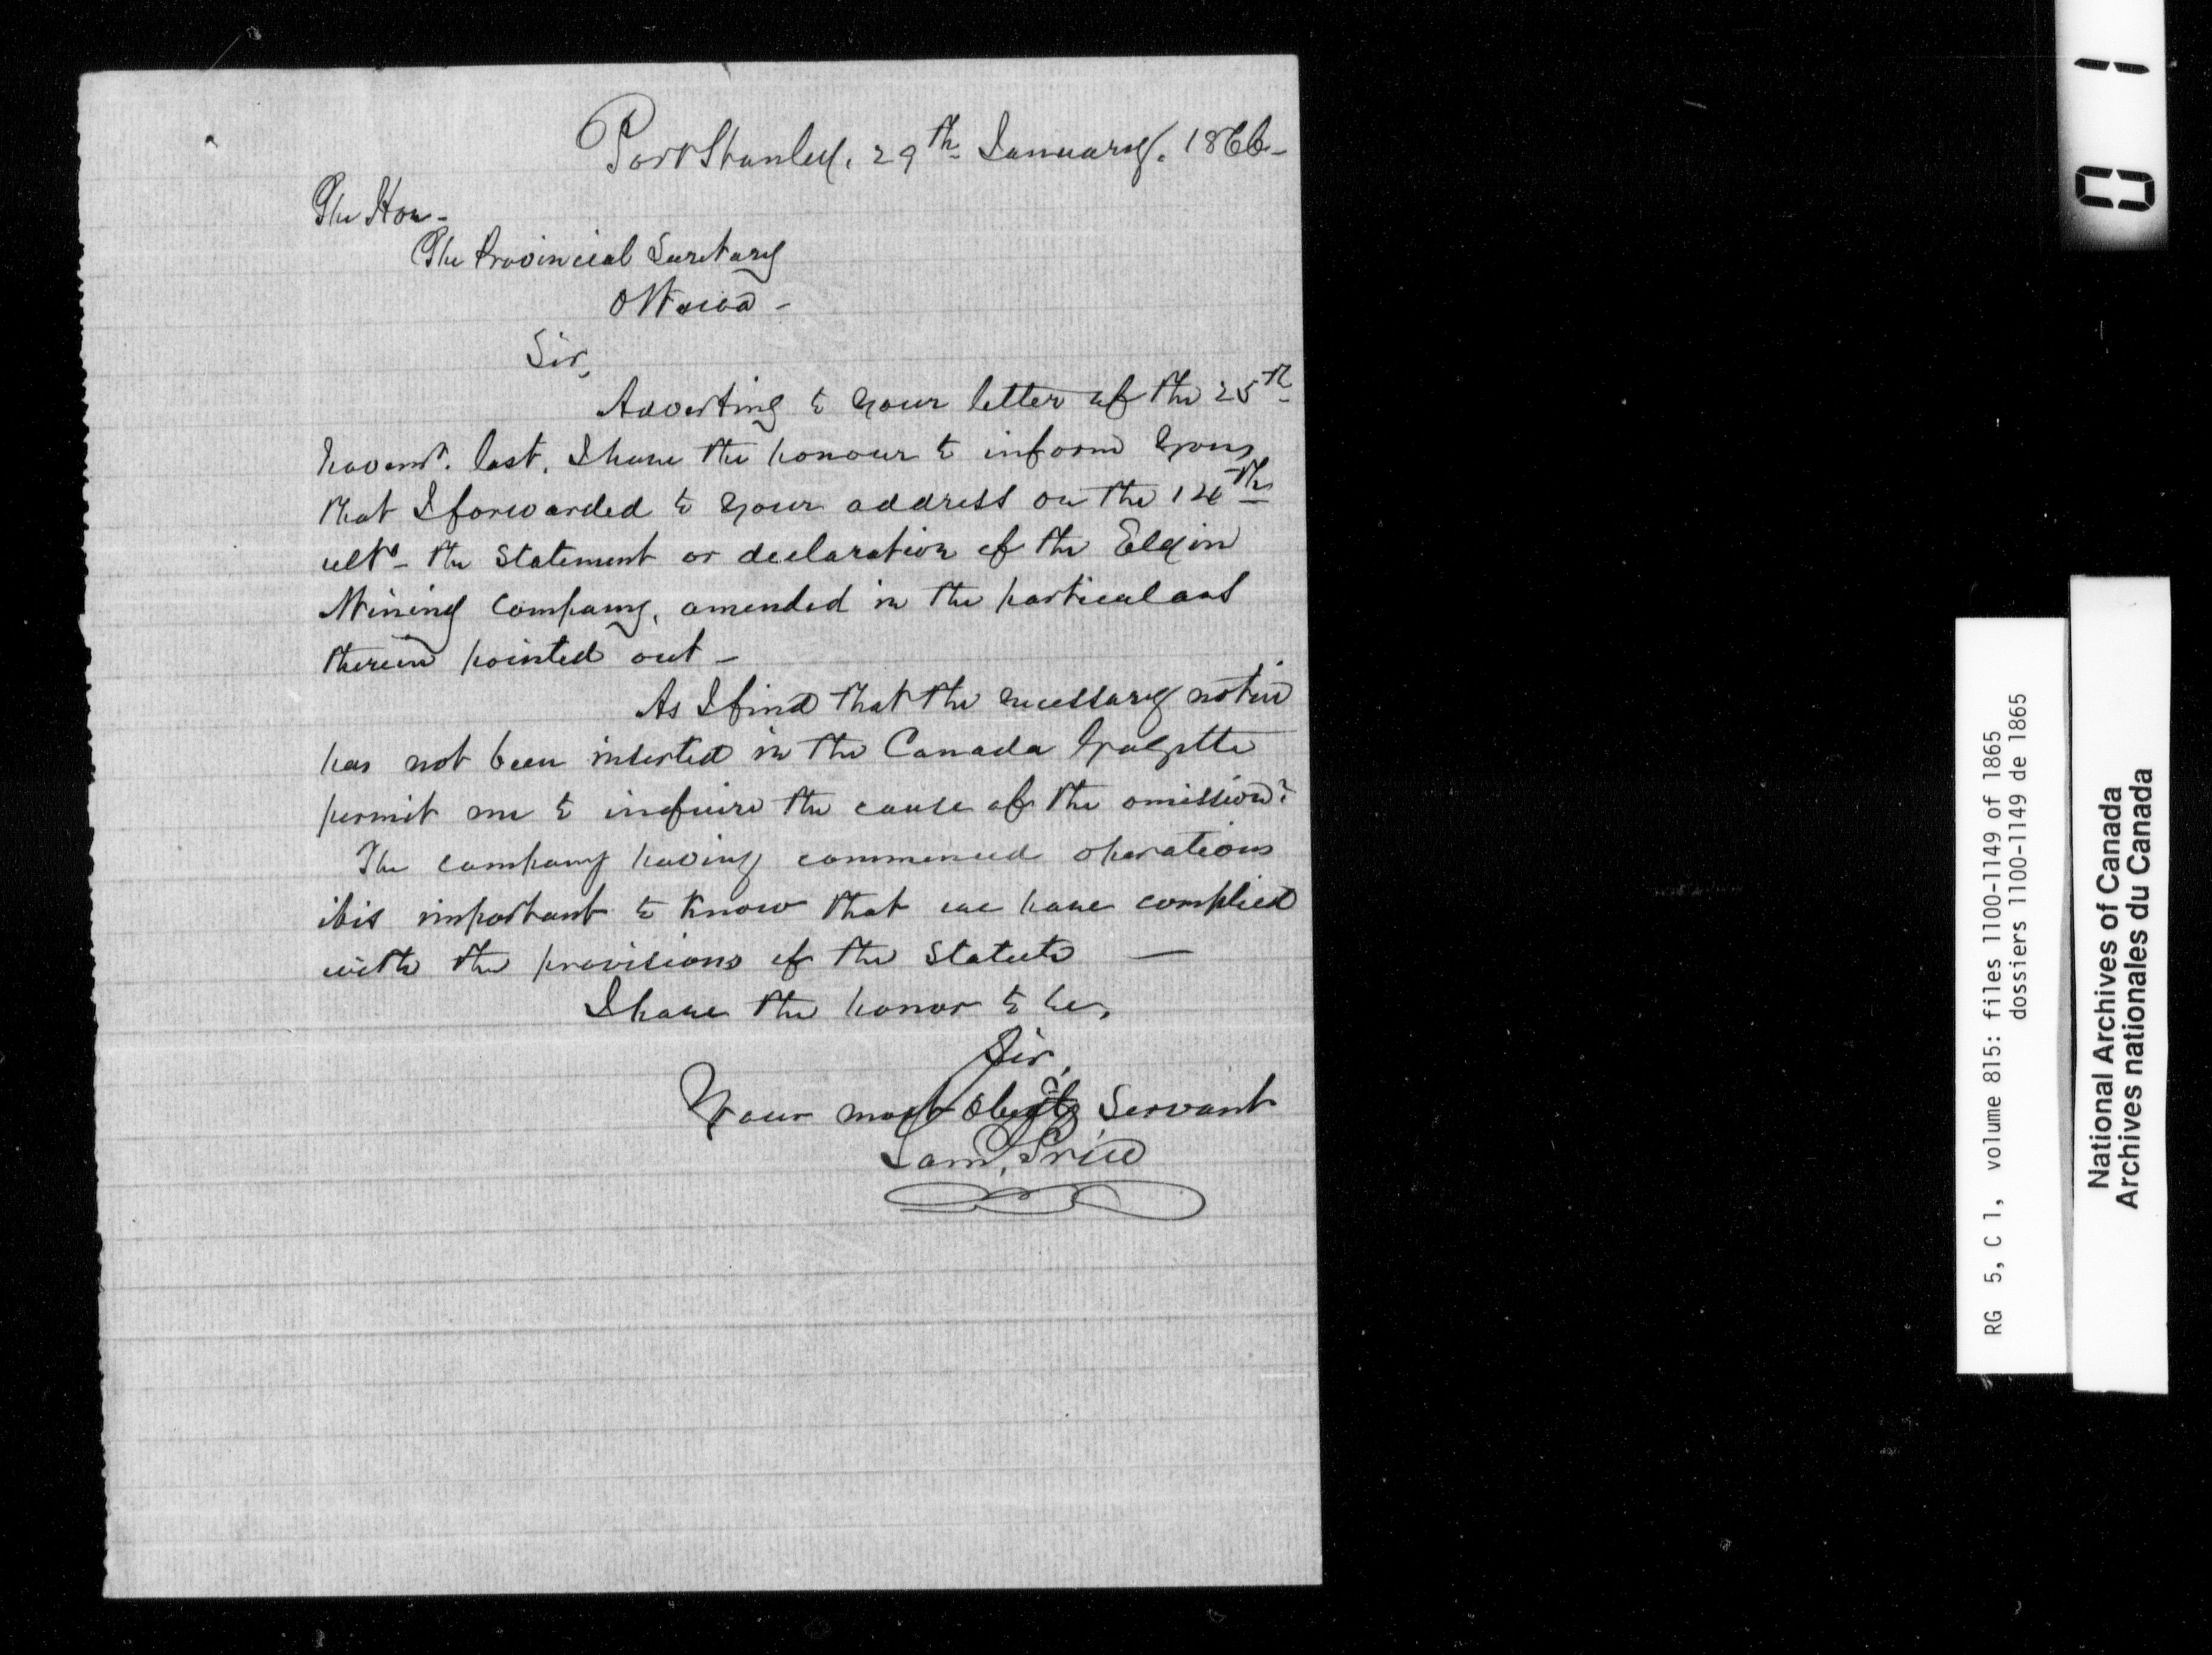 Port Stanley. 29th January. 1866-
The Hon-
The Provincial Secretary
Ottawa -
Sir,
Adverting to your letter of the 25th
Novemr. last, I have the honour to inform you,
that I forwarded to your address on the 14th
ulto- the statement or declaration of the Elgin
Mining Company, amended in the particulars
therein pointed out -
As I find that the necessary notice
has not been inserted in the Canada Gazette
permit me to inquire the cause of the omission?
The company having commenced operations
it is important to know that we have complied
with the provisions of the Statute —
I have the honor to be,
Sir,
Your most Obedt Servant
Sam. Price
01
RG 5, C 1, volume 815: files 1100-1149 of 1865
dossiers 1100-1149 de 1865
National Archives of Canada
Archives nationales du Canada